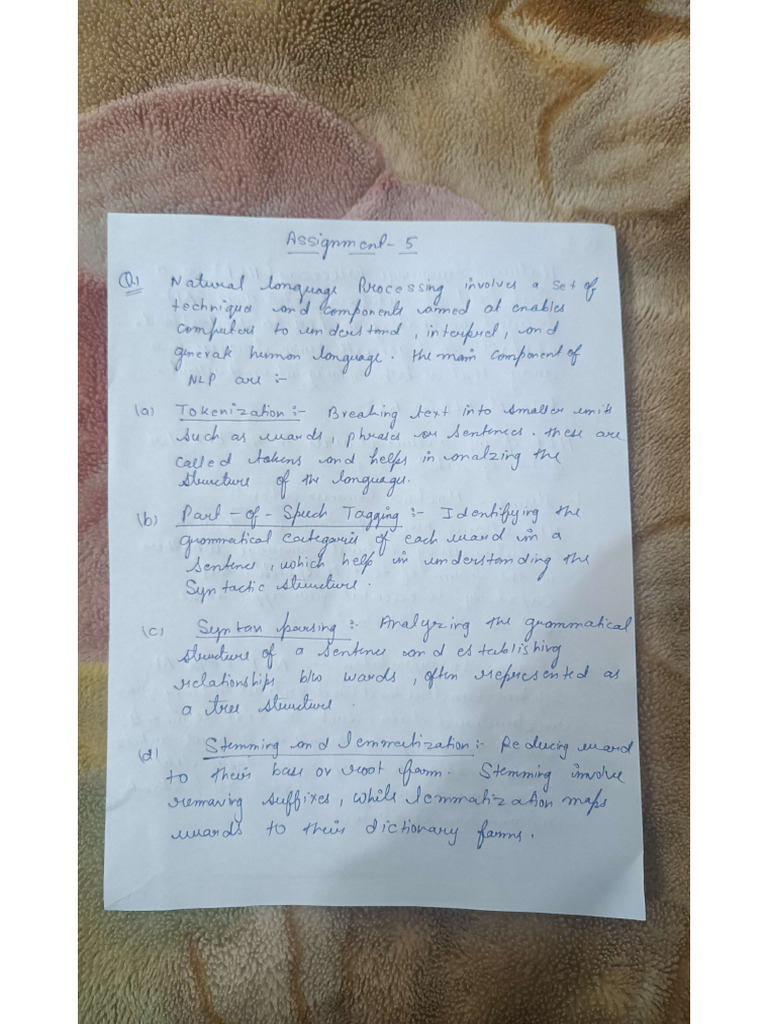 Assignment - 5
Q1 Natural language Processing involves a set of
techniques and components aimed at enables
computers to understand, interpret, and
generate human language. the main component of
NLP are :-
(a) Tokenization :- Breaking text into smaller units
such as words, phrases or sentences. these are
called tokens and helps in analzing the
structure of the language.
(b) Part - of - Speech Tagging :- Identifying the
grammatical categories of each word in a
sentence, which help in understanding the
Syntactic structure.
(c) Syntax parsing :- Analyzing the grammatical
structure of a sentence and establishing
relationships b/w words, often represented as
a tree structure.
(d) Stemming and lemmatization :- Reducing word
to their base or root form. Stemming involve
removing suffixes, while lemmatization maps
words to their dictionary forms.